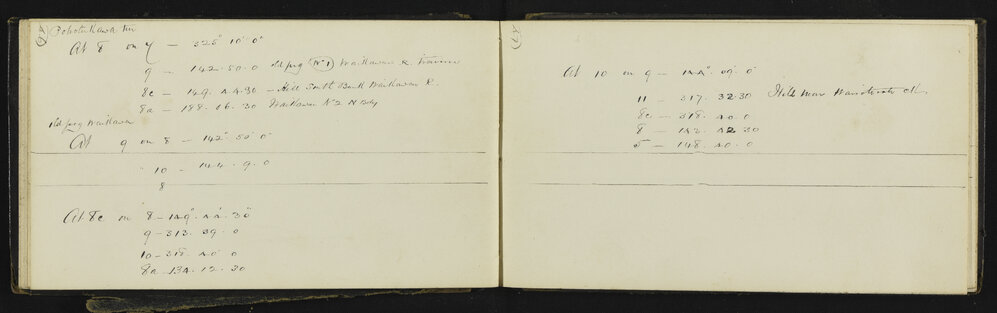 Pohutukawa
At 8 on 7 — 325° 10' 0"
9 — 142 . 50 . 0 old peg (No 1) Waikawa R.
8c — 149 . 44 . 30 — Hill South Bank Waikawa R.
8a — 188 . 06 . 30 Waikawa No 2 N Bdy
old peg Waikawa
At 9 on 8 — 142° 50' 0"
" 10 — 144 . 9 . 0
8
At 8c on 8 — 149° 44' 30"
9 — 313 . 39 . 0
10 — 318 . 40 . 0
8a — 134 . 12 . 30
At 10 on 9 — 144° . 09' . 0"
11 — 317 . 32 . 30 Hill near
8c — 318 . 40 . 0
8 — 142 . 42 . 30
5 — 148 . 40 . 0